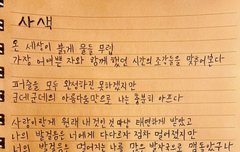 사색
온 세상이 붉게 물들 무렵
가장 어여쁜 자와 함께 했던 시간의 조각들을 맞추어본다
퍼즐을 모두 완성하진 못하겠지만
군데군데의 아름다움만으로 나는 충분히 아프다
사랑이란게 원래 내것인 것 마냥 태연하게 밟았고
나의 발걸음은 너에게 다다르자 점차 멀어졌지만
너의 발걸음은 멀어지는 나를 맞은 발자국으로 맴돌았구나